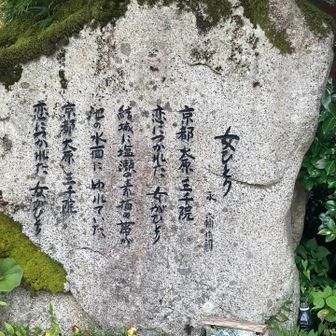 女ひとり
永六輔
京都大原三千院
恋につかれた女がひとり
結城に塩瀬の素描の帯が
池の水面にゆれていた
京都大原三千院
恋につかれた女がひとり